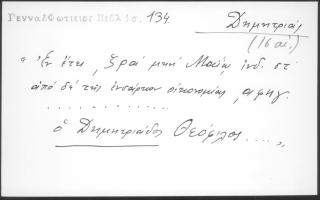 Γενναδίου Βιβλ. σ. 134
Δημητριάς
(16 αἰ.)
" Ἐν ἔτει ζραʹ μηνὶ Μαίῳ ἰνδ. στʹ
ἀπὸ δὲ τῆς ἐνσάρκου οἰκονομίας, αφηγʹ.
. . . . . . . . . . . . .
ὁ Δημητριάδος Θεόφιλος .... "